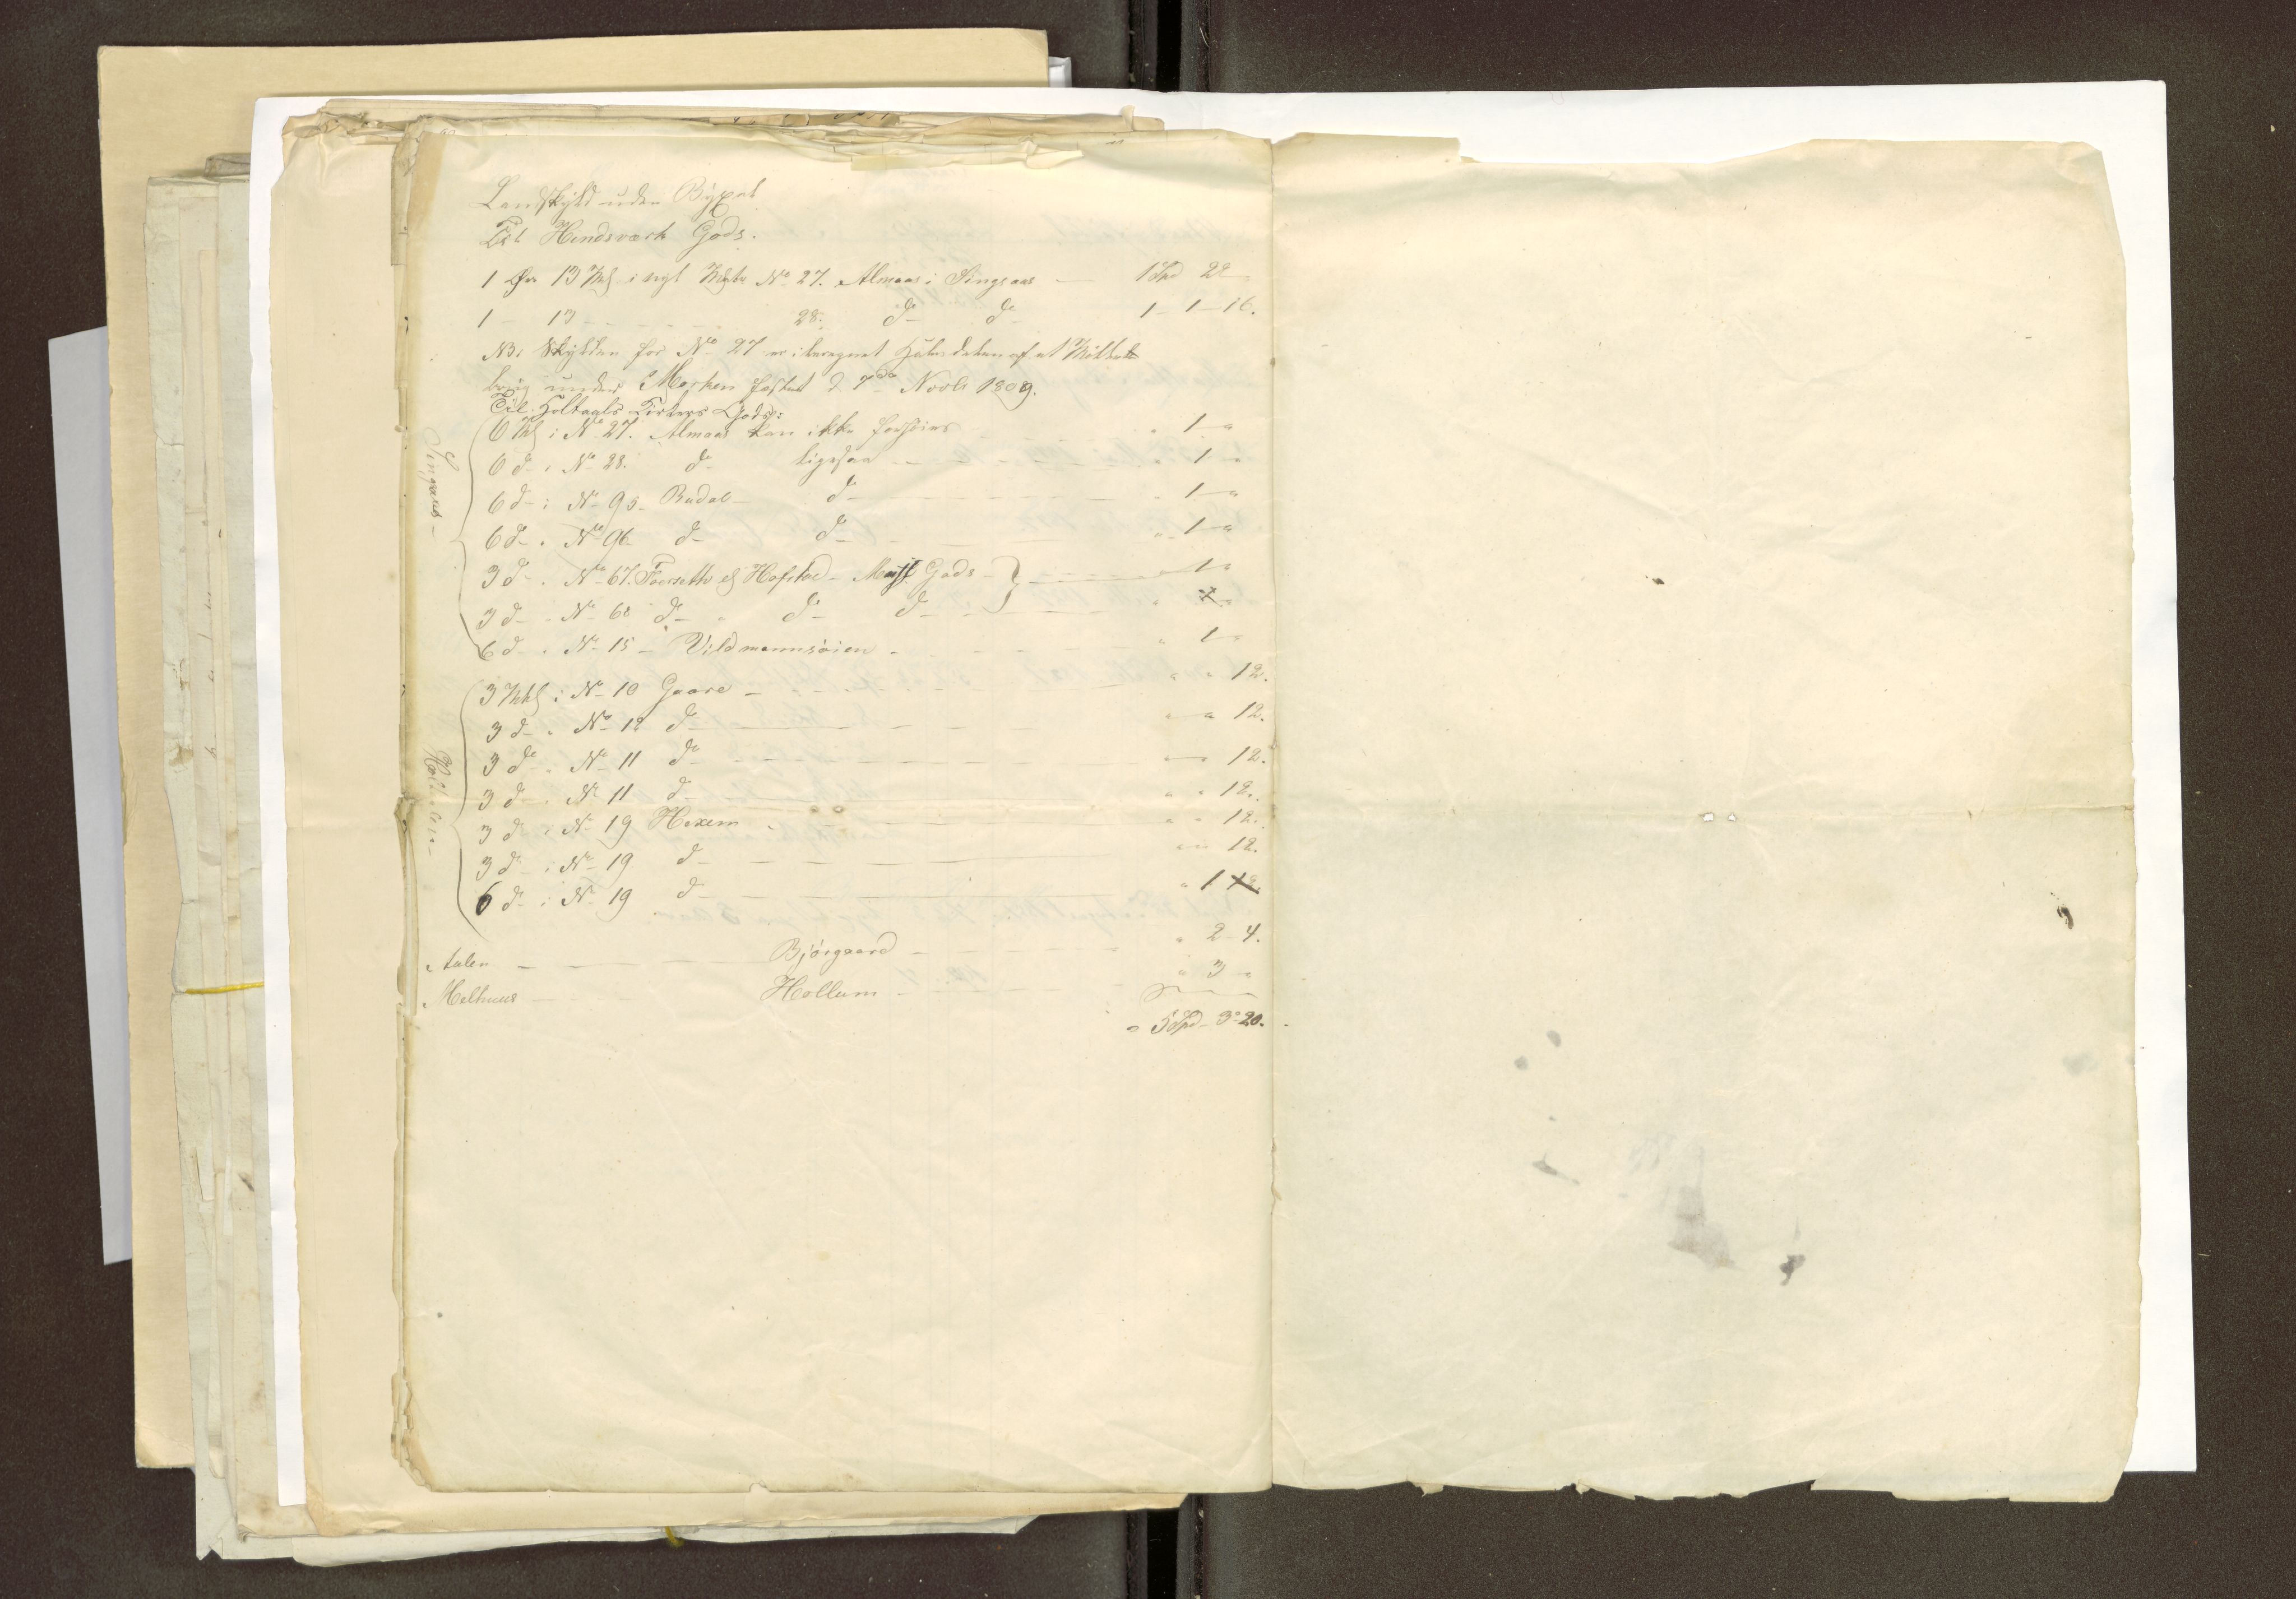 Landskyld uden Bygsel
Til Hendsværk Gods.
1 Ør 13 Mkl i nyt Matr No 27. Almaas i Singsaas — 1 Spd 22
1 — 13 - - - - - 28. do do 1 - 1 - 16.
NB: Skylden for No 27 er iberegnet Halvdelen af et
brug under Morken fæstet d 7de Novbr 1809.
Til Holtaals Kirkers Gods:
Singsaas —
6 Mkl i No 27. Almaas kan ikke forhøies " 1 "
6 do i No 28. do ligesaa — — — " 1 "
6 do i No 95 - Budal — do — — — " 1 "
6 do " No 96 do do — — — " 1 "
3 do " No 67. Forseth ell Hofstad — Gods — } — — — " 1 "
3 do " No 68 do " do do — — —
6 do " No 15 — Vildmannsøien - — — " 1 "
Holtaalen —
3 Mkl i No 10 Gaare — — — " " 12.
3 do " No 12 do — — — " " 12.
3 do " No 11 do — — — " " 12.
3 do " No 11 do — — — " " 12.
3 do " No 19 Hexem — — " " 12.
3 do i No 19 do — — — " " 12.
6 do i No 19 do — — — " 1
Aalen — — — Bjørgaard — — — " 2 - 4.
Melhuus — — Hollum — — — " 3 "
" 5 Spd - 3 " 20.